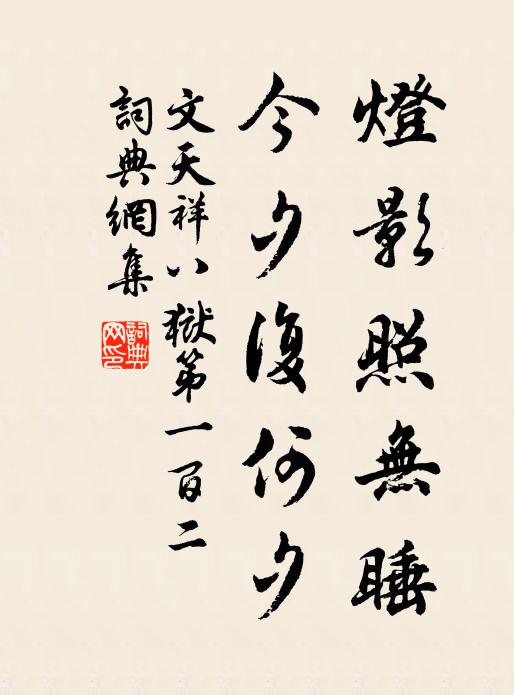 燈影照無睡
今夕復何夕
文天祥八獄第一百二
詞典網集
詞典網印